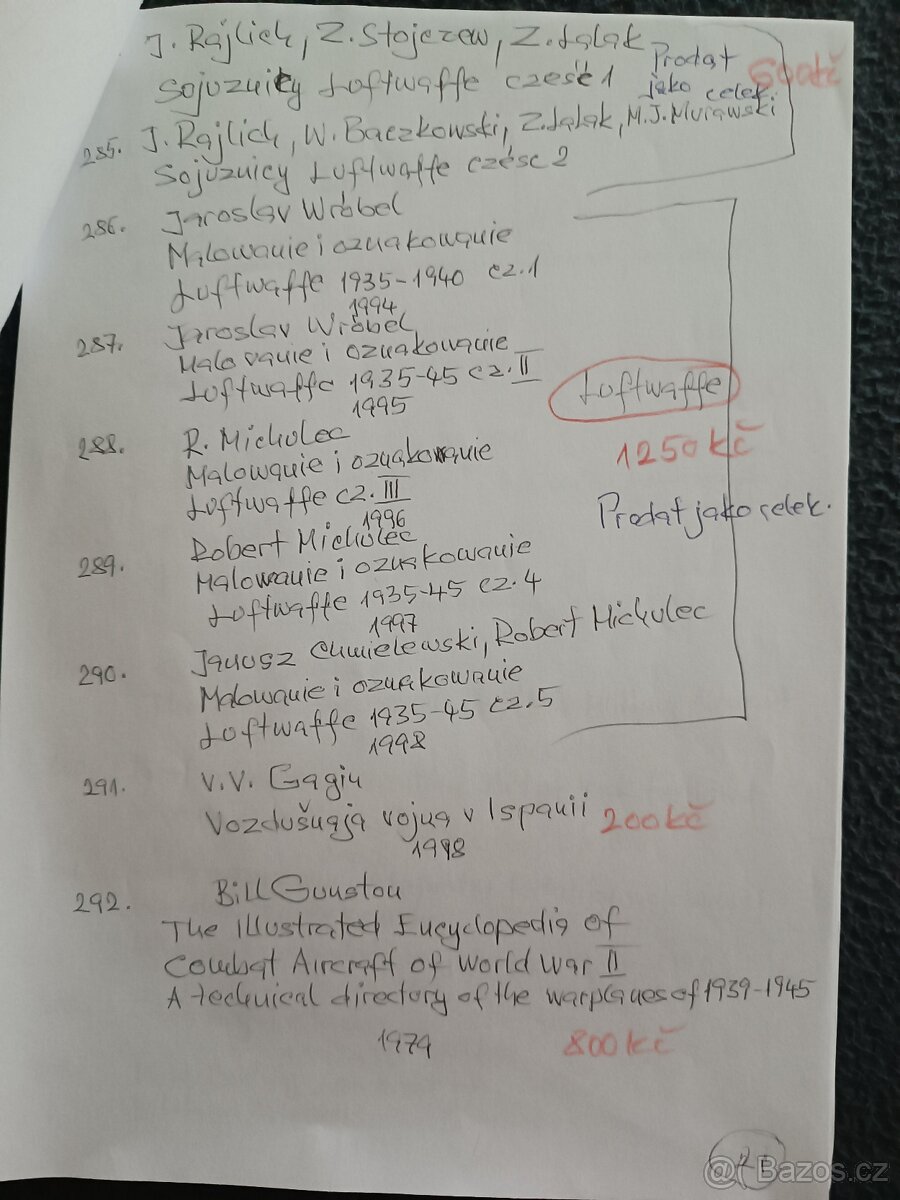 J. Rajlich, Z. Stojczew, Z. Lalak
Sojuznicy Luftwaffe cześć 1
Prodat
jako celek.
600kč
285. J. Rajlich, W. Baczkowski, Z. Lalak, M.J. Murawski
Sojuznicy Luftwaffe czésc 2
286. Jaroslav Wróbel
Malowanie i oznakowanie
Luftwaffe 1935-1940 cz.1
1994
287. Jaroslav Wróbel
Malowanie i oznakowanie
Luftwaffe 1935-45 cz. II
1995
Luftwaffe
1250kč
Prodat jako celek.
288. R. Michulec
Malowanie i oznakowanie
Luftwaffe cz. III
1996
289. Robert Michulec
Malowanie i oznakowanie
Luftwaffe 1935-45 cz. 4
1997
290. Janusz Chmielewski, Robert Michulec
Malowanie i oznakowanie
Luftwaffe 1935-45 cz. 5
1998
291. V.V. Gagin
Vozdušnaja vojna v Ispanii 200kč
1998
292. Bill Gunston
The Illustrated Encyclopedia of
Combat Aircraft of World War II
A technical directory of the warplanes of 1939-1945
1979 800kč
Bazos.cz